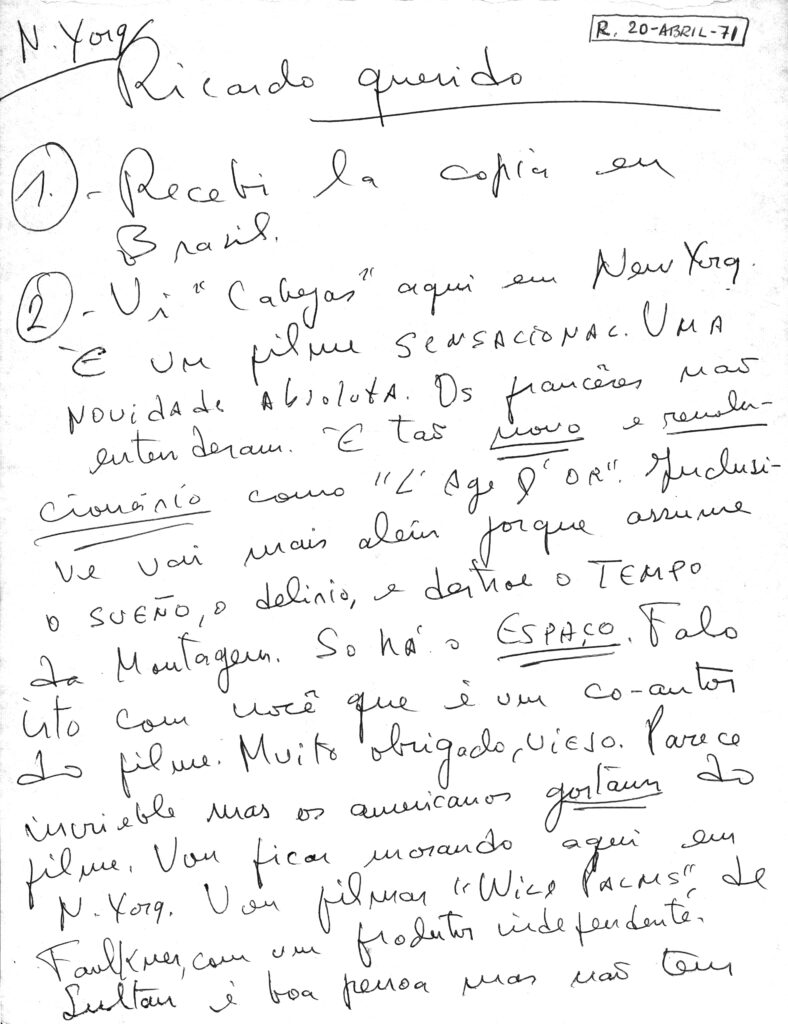 N. Yorq
R. 20-ABRIL-71
Ricardo querido
1. - Recebi la copia en
Brasil.
2 - Vi "Cabeças" aqui em New Yorq.
É um filme SENSACIONAL. UMA
NOVIDADE AbsoLUTA. Os francêses não
entenderam. É tão novo e revolu-
cionário como "L'Age d'OR". Inclusi-
ve vai mais além porque assume
o SUEÑO, o delirio, e destroe o TEMPO
da Montagem. So há o ESPAÇO. Falo
isto com você que é um co-autor
do filme. Muito obrigado, VIEJO. Parece
incrieble mas os americanos gostam do
filme. Vou ficar morando aqui em
N. Yorq. Vou filmar "WILD PALMS", de
Faulkner, com um produtor independente.
Sultan é boa pessoa mas não tem